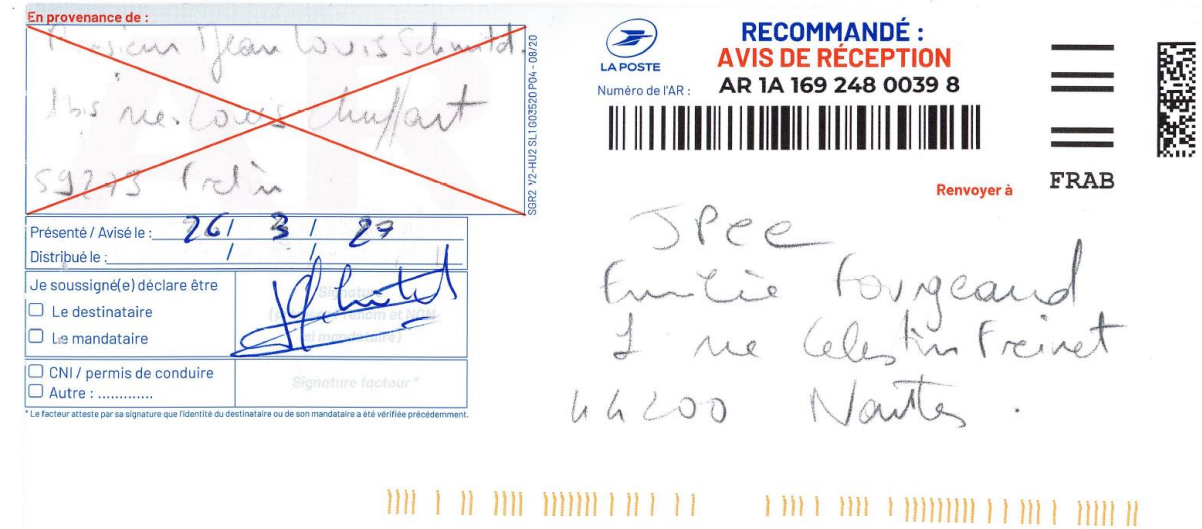 En provenance de :
Monsieur Jean Louis Schmitd.
1 bis rue Louis Chuffart
59273 Fretin
SGR2 V2-HU2 SL1 G03520 P04 - 08/20
Présenté / Avisé le : 26 / 3 /
Distribué le : / /
Je soussigné(e) déclare être
Le destinataire
Le mandataire
Signature
CNI / permis de conduire
Autre : .............
Signature facteur *
* Le facteur atteste par sa signature que l'identité du destinataire ou de son mandataire a été vérifiée précédemment.
LA POSTE
RECOMMANDÉ :
AVIS DE RÉCEPTION
Numéro de l'AR : AR 1A 169 248 0039 8
FRAB
Renvoyer à
JPee
Emilie Fourgeaud
1 rue Celestin Freinet
44200 Nantes.